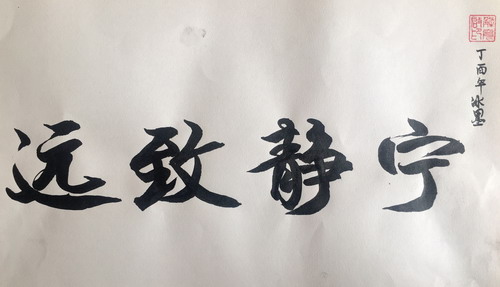 宁静致远
丁酉年冰墨